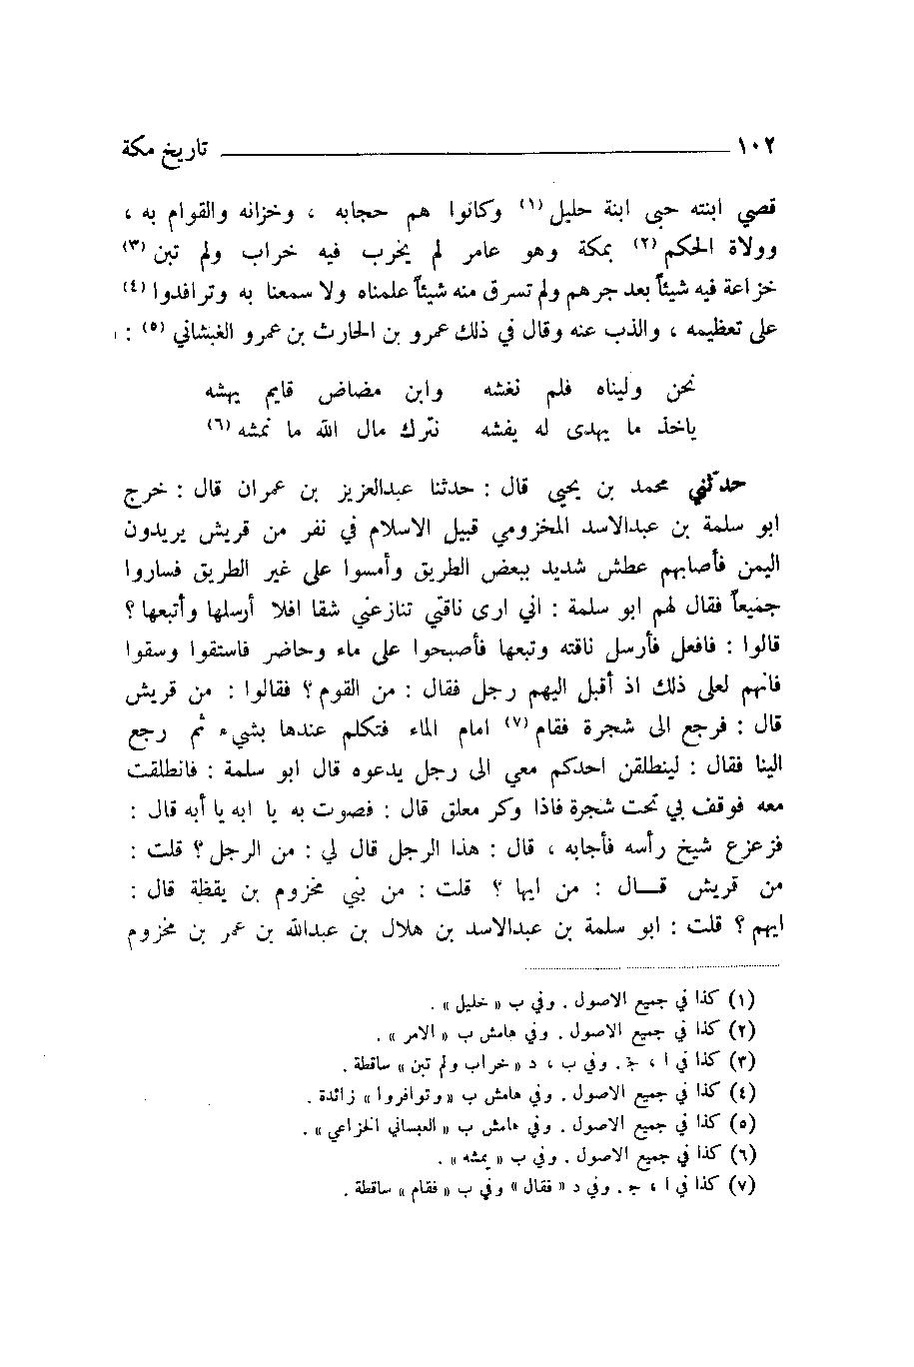 ١٠٢ ــــــــــــــــــــ تاريخ مكة
قصي ابنته حبى ابنة حليل (١) وكانوا هم حجابه ، وخزانه والقوام به ،
وولاة الحكم (٢) بمكة وهو عامر لم يخرب فيه خراب ولم تبن (٣)
خزاعة فيه شيئاً بعد جرهم ولم تسرق منه شيئاً علمناه ولا سمعنا به وترافدوا (٤)
على تعظيمه ، والذب عنه وقال في ذلك عمرو بن الحارث بن عمرو الغبشاني (٥) :
نحن وليناه فلم نغشه وابن مضاض قايم يهشه
ياخذ ما يهدى له يفشه نترك مال الله ما نمشه (٦)
حدثني محمد بن يحيى قال : حدثنا عبدالعزيز بن عمران قال : خرج
ابو سلمة بن عبدالاسد المخزومي قبيل الاسلام في نفر من قريش يريدون
اليمن فأصابهم عطش شديد ببعض الطريق وأمسوا على غير الطريق فساروا
جميعاً فقال لهم ابو سلمة : اني ارى ناقتي تنازعني شقا افلا أرسلها وأتبعها ؟
قالوا : فافعل فأرسل ناقته وتبعها فأصبحوا على ماء وحاضر فاستقوا وسقوا
فانهم لعلى ذلك اذ أقبل اليهم رجل فقال : من القوم ؟ فقالوا : من قريش
قال : فرجع الى شجرة فقام (٧) امام الماء فتكلم عندها بشيء ثم رجع
الينا فقال : لينطلقن احدكم معي الى رجل يدعوه قال ابو سلمة : فانطلقت
معه فوقف بي تحت شجرة فاذا وكر معلق قال : فصوت به يا ابه يا أبه قال :
فزعزع شيخ رأسه فأجابه ، قال : هذا الرجل قال لي : من الرجل ؟ قلت :
من قريش قــال : من ايها ؟ قلت : من بني مخزوم بن يقظة قال :
ايهم ؟ قلت : ابو سلمة بن عبدالاسد بن هلال بن عبدالله بن عمر بن مخزوم
(١) كذا في جميع الاصول . وفي ب « خليل » .
(٢) كذا في جميع الاصول . وفي هامش ب « الامر » .
(٣) كذا في ا ، ج . وفي ب ، د « خراب ولم تبن » ساقطة .
(٤) كذا في جميع الاصول . وفي هامش ب « وتوافروا » زائدة .
(٥) كذا في جميع الاصول . وفي هامش ب « العبساني الخزاعي » .
(٦) كذا في جميع الاصول . وفي ب « يمشه » .
(٧) كذا في ا ، ج . وفي د « فقال » وفي ب « فقام » ساقطة .